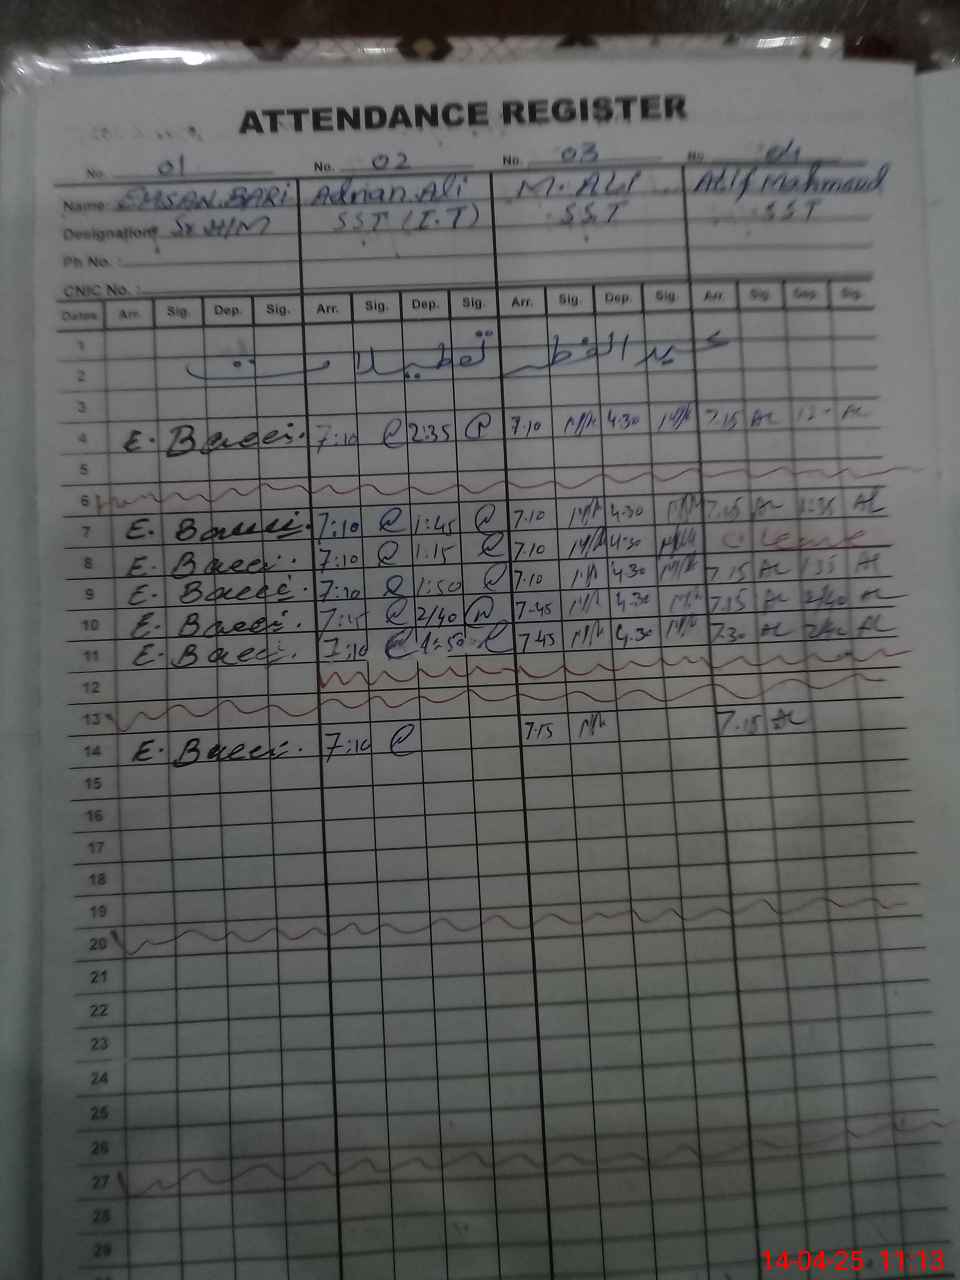 ATTENDANCE REGISTER
No. 01 No. 02 No. 03 No. 04
Name: EHSAN BARI Adnan Ali M. ALI Atif Mahmood
Designation: Sr H/M SST (I.T) SST SST
Ph No. :
CNIC No. :
Dates Arr. Sig. Dep. Sig. Arr. Sig. Dep. Sig. Arr. Sig. Dep. Sig. Arr. Sig. Dep. Sig.
1
عید الفطر تعطیلات
2
3
4 E. Bari 7:10 2:35 7.10 4.30 7.15
5
6
7 E. Bari 7:10 1:45 7.10 4.30 7.15 1:35
8 E. Bari 7:10 1:15 7.10 4.30 C Leave
9 E. Bari 7:10 1:50 7.10 4.30 7.15 1 35
10 E. Bari 2/40 7-45 4.30 7.15 2/40
11 E. Bari 7:10 1:50 7 45 4.30 7.30
12
13
14 E. Bari 7:10 7.15 7.15
15
16
17
18
19
20
21
22
23
24
25
26
27
28
29
14-04-25 11:13